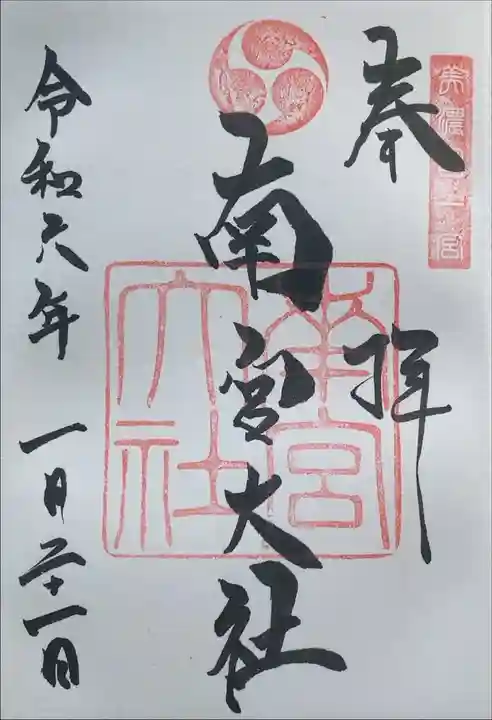 奉拝
南宮大社
南宮
大社
令和六年 一月二十一日